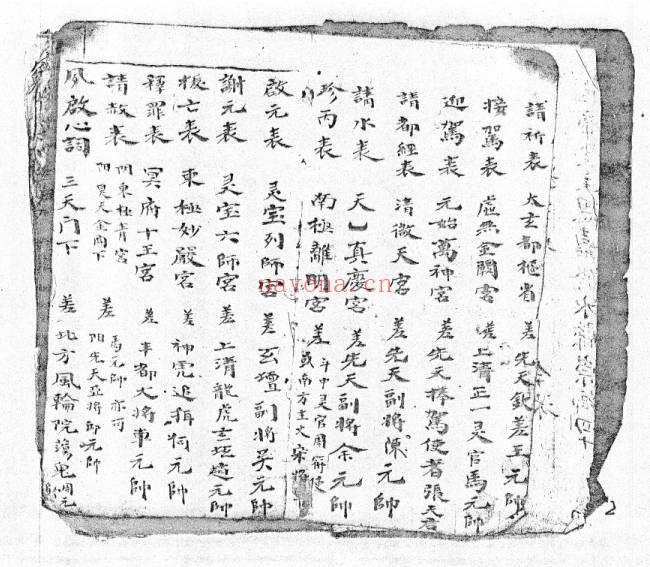 請祈表 太玄都樞省 差 先天欽差王元帥
接駕表 虛無金闕宮 差上清正一灵官馬元帥
迎駕表 元始萬神宮 差先天捧駕使者張天君
請都經表 清微天宮 差先天副將陳元帥
請水表 天一真慶宮 差先天副將余元帥
珍丙表 南極離明宮 差 斗中灵官周
或南方主火宋將
啟元表 灵宝列師宮 差玄壇副將吴元帥
謝元表 灵宝六師宮 差上清龍虎玄坛趙元帥
拔亡表 東極妙嚴宮 差神虎追攝何元帥
釋罪表 冥府十王宮 差丰都大將車元帥
請赦表 阴東極青宮
阳昊天金阙下 差 馬元帥亦可
阳先天亞將邱元帥
夙啟心詞 三天门下 差北方風輪院周元
nayona.cn
2